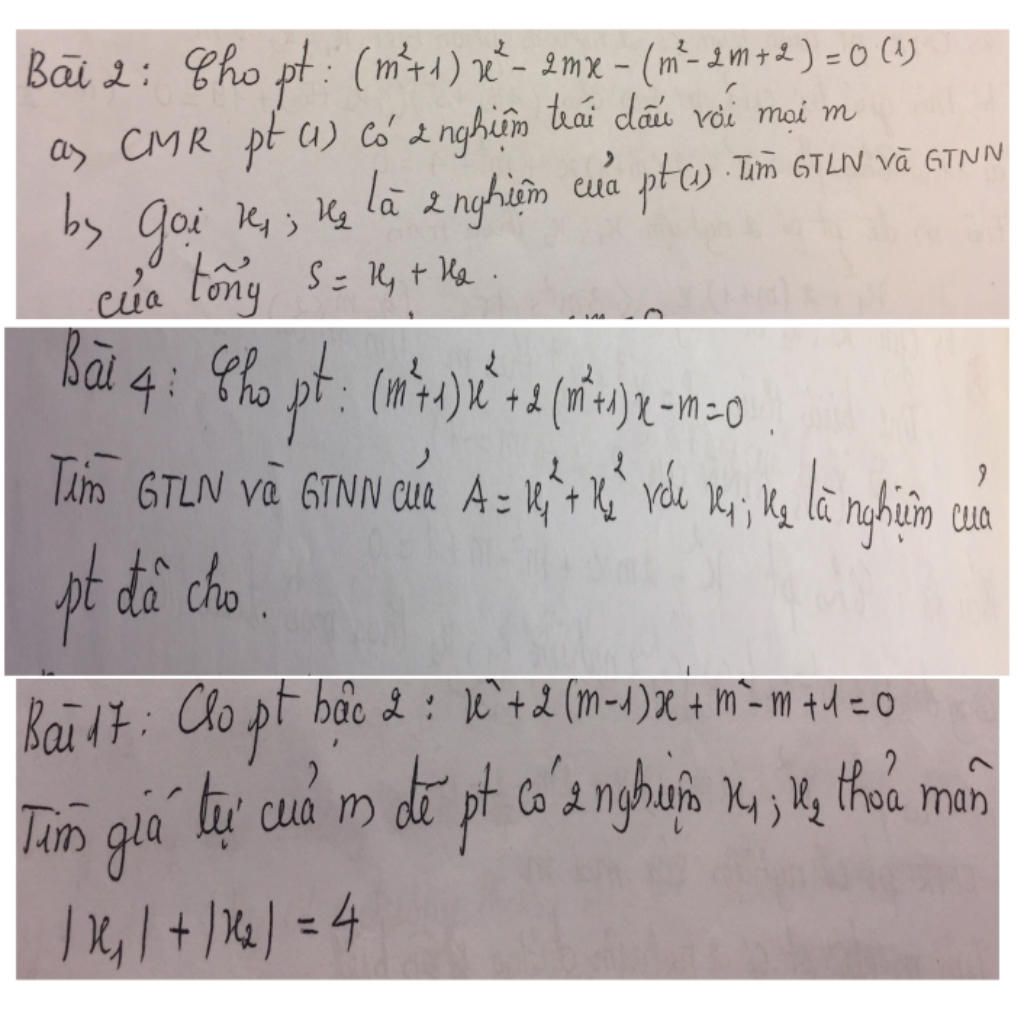 Bài 2: Cho pt: (m²+1)x² - 2mx - (m² - 2m + 2) = 0 (1)
a, CMR pt (1) có 2 nghiệm trái dấu với mọi m
b, Gọi x₁; x₂ là 2 nghiệm của pt(1). Tìm GTLN và GTNN
của tổng S = x₁ + x₂.
Bài 4: Cho pt: (m²+1)x² + 2(m²+1)x - m = 0.
Tìm GTLN và GTNN của A = x₁² + x₂² với x₁; x₂ là nghiệm của
pt đã cho.
Bài 17: Cho pt bậc 2: x² + 2(m-1)x + m² - m + 1 = 0
Tìm giá trị của m để pt có 2 nghiệm x₁; x₂ thoả mãn
|x₁| + |x₂| = 4